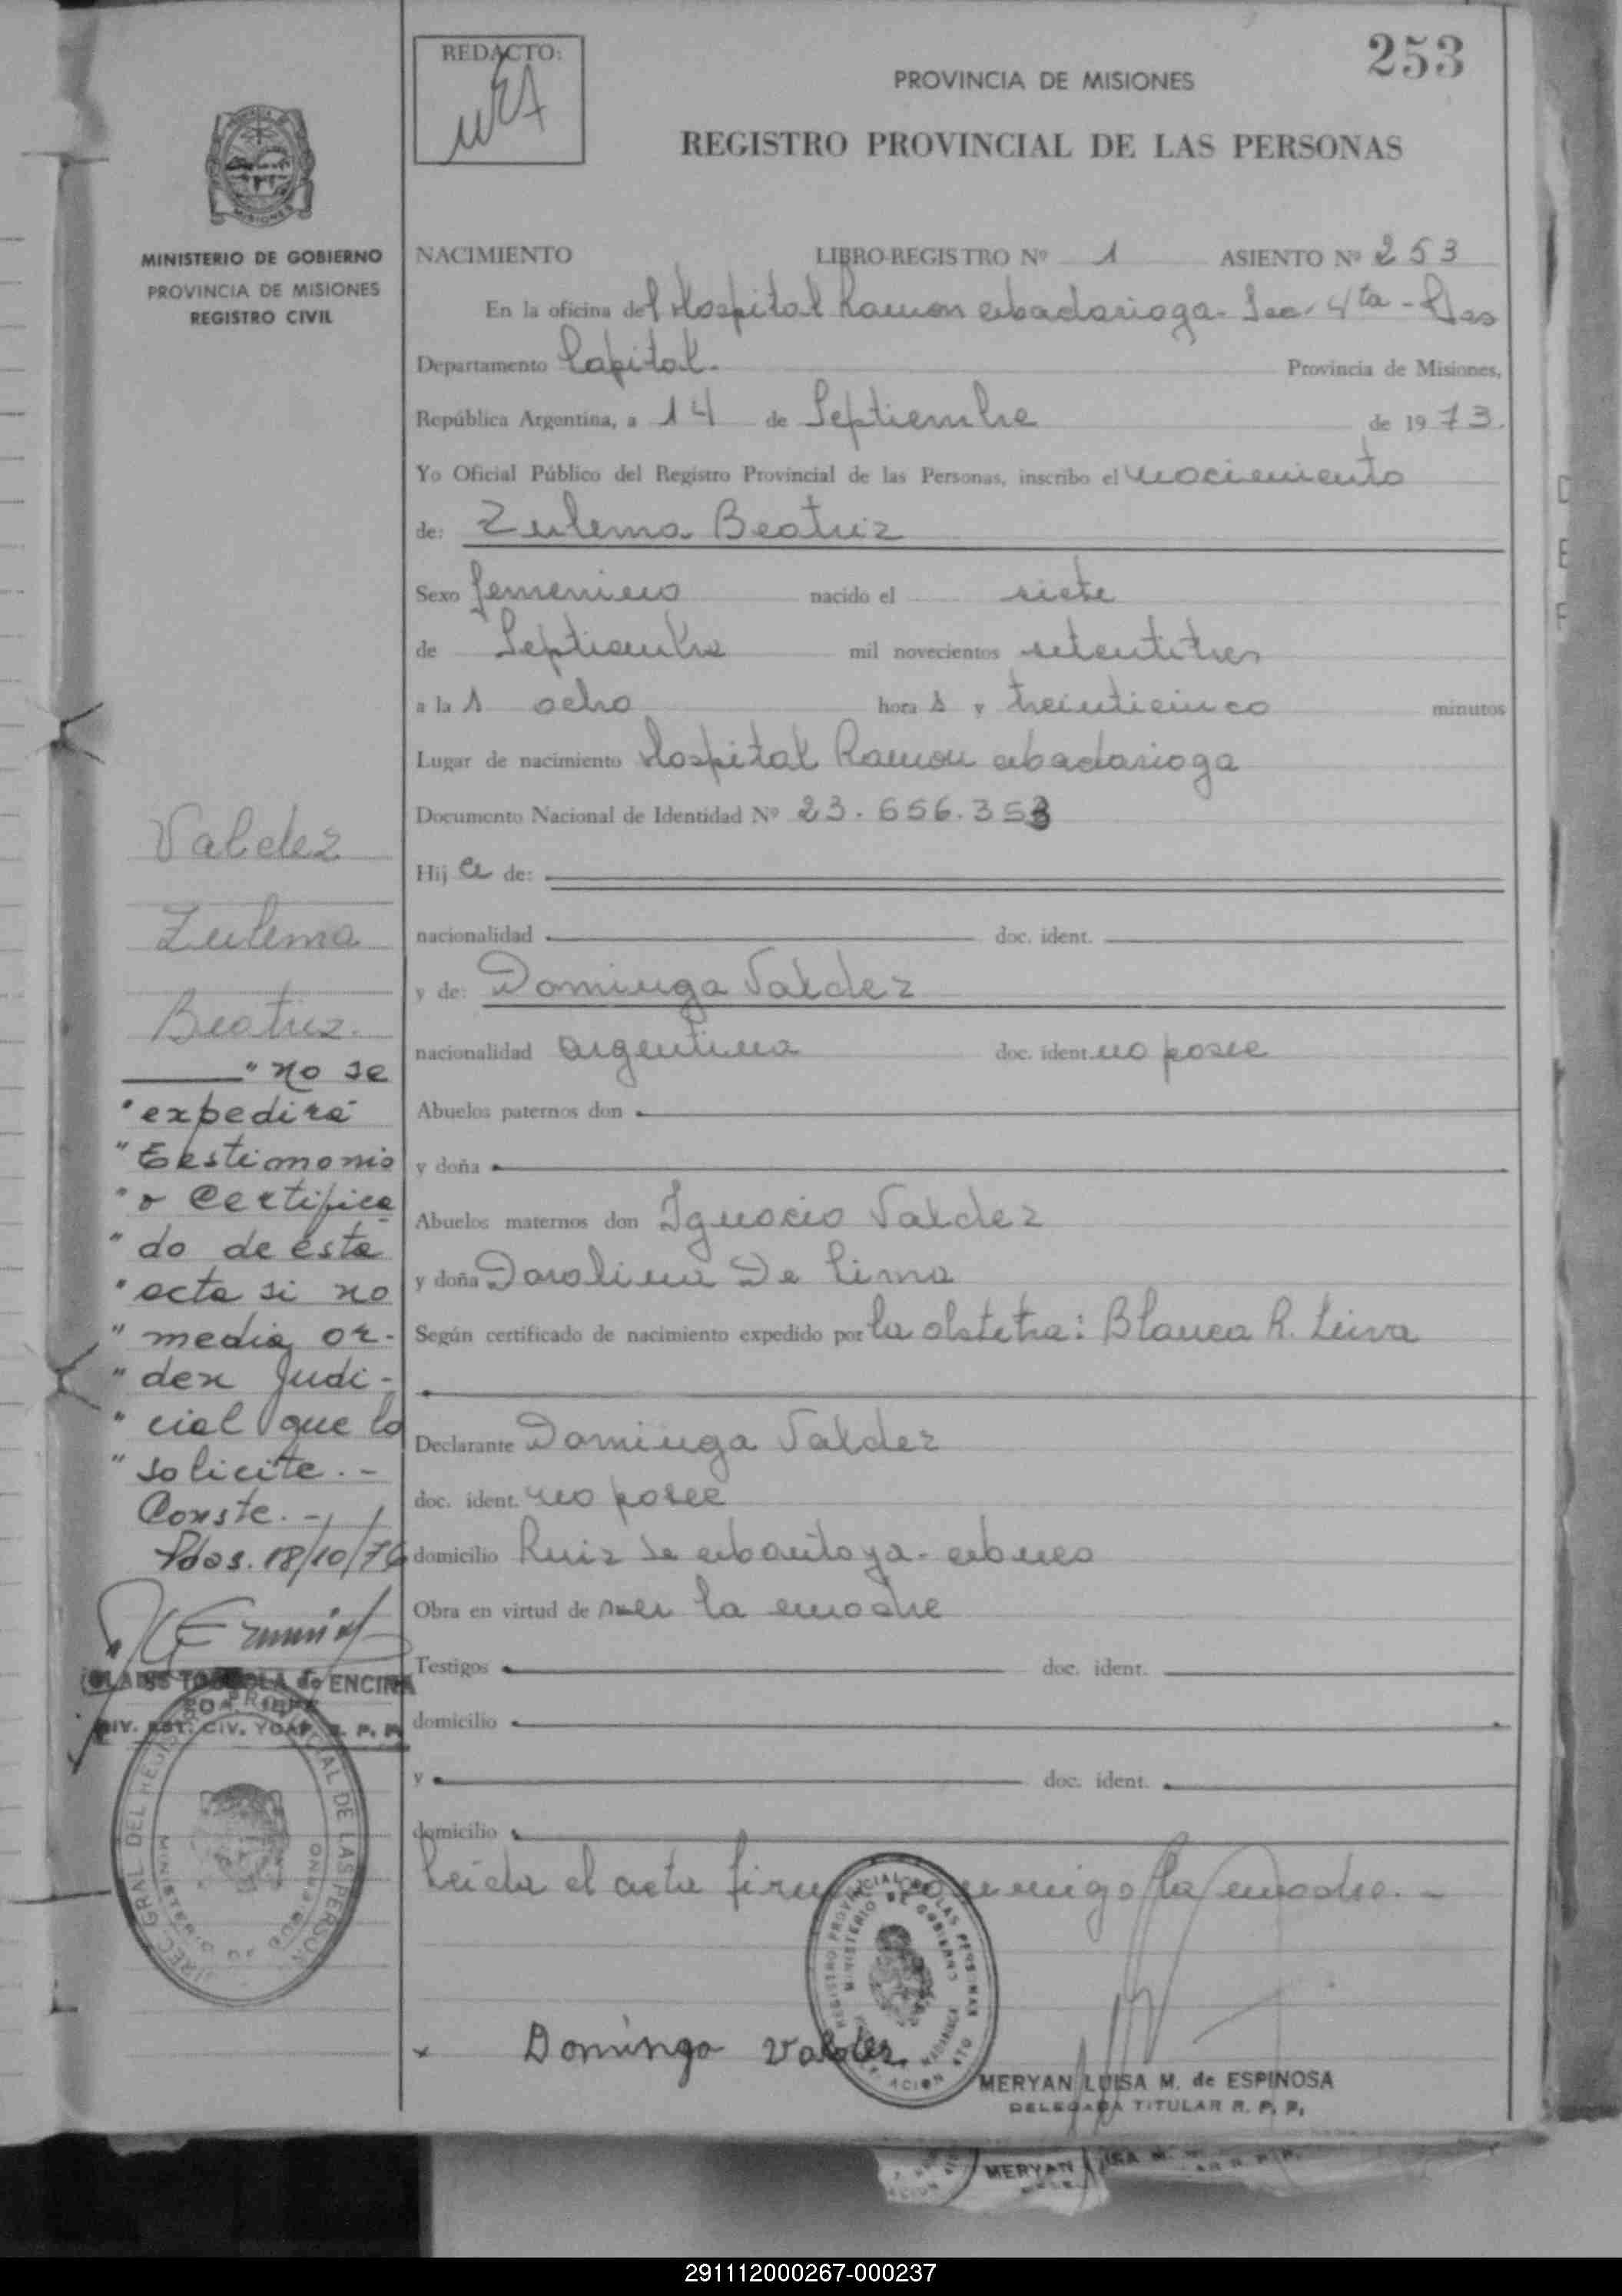 253
REDACTO:
PROVINCIA DE MISIONES
REGISTRO PROVINCIAL DE LAS PERSONAS
MISIONES
MINISTERIO DE GOBIERNO
PROVINCIA DE MISIONES
REGISTRO CIVIL
NACIMIENTO LIBRO-REGISTRO Nº 1 ASIENTO Nº 253
En la oficina del Hospital Ramón Madariaga - Sec. 4ta - Pdas
Departamento Capital. Provincia de Misiones,
República Argentina, a 14 de Septiembre de 1973.
Yo Oficial Público del Registro Provincial de las Personas, inscribo el nacimiento
de: Zulema Beatriz
Sexo femenino nacido el siete
de Septiembre mil novecientos setentitres
a las ocho horas y treinticinco minutos
Lugar de nacimiento Hospital Ramon Madariaga
Documento Nacional de Identidad Nº 23.656.353
Hija de:
nacionalidad doc. ident.
y de: Dominga Valdez
nacionalidad argentina doc. ident. no posee
Abuelos paternos don
y doña
Abuelos maternos don Ignacio Valdez
y doña Darolina De Lima
Según certificado de nacimiento expedido por la obstetra: Blanca R. Leiva
Declarante Dominga Valdez
doc. ident. no posee
domicilio Ruiz de Montoya - Mnes
Obra en virtud de ser la madre
Testigos doc. ident.
domicilio
y doc. ident.
domicilio
Leída el acta firma conmigo la madre. -
x Dominga Valdez
MERYAN LUISA M. de ESPINOSA
DELEGADA TITULAR R. P. P.
Valdez
Zulema
Beatriz.
"No se
"expedirá
"Testimonio
"o Certifica
"do de ésta
"acta si no
"media or-
"den Judi-
"cial que lo
"solicite. -
Conste. -
Pdas. 18/10/76
DIREC. GRAL DEL REGISTRO PROVINCIAL DE LAS PERSONAS
MINISTERIO DE GOBIERNO
REGISTRO PROVINCIAL DE LAS PERSONAS
MINISTERIO DE GOBIERNO
MERYAN
291112000267-000237